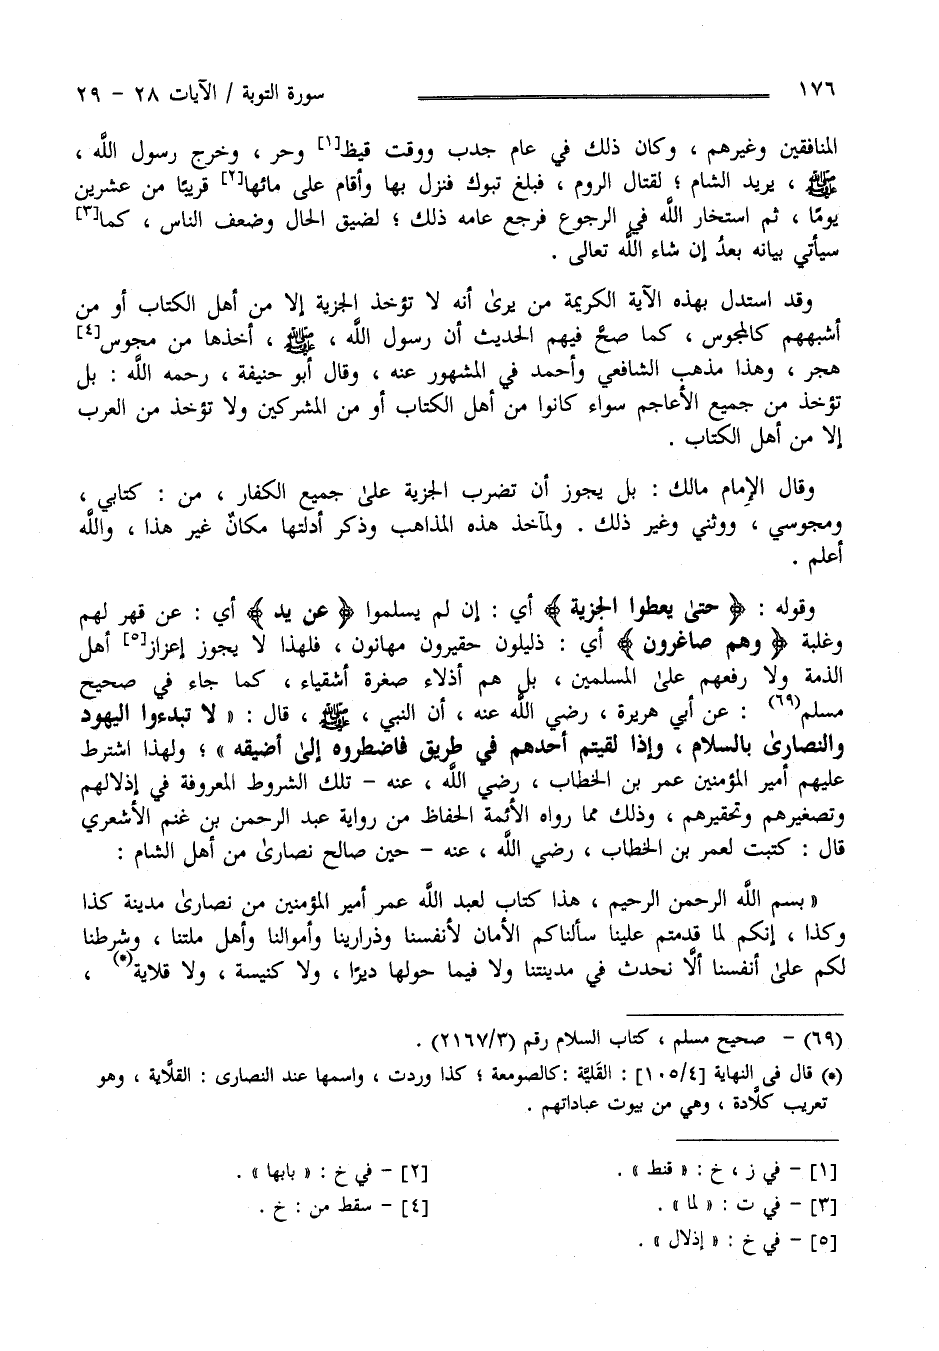 ١٧٦ سورة التوبة / الآيات ٢٨ - ٢٩
المنافقين وغيرهم ، وكان ذلك في عام جدب ووقت قيظ[١] وحر ، وخرج رسول اللَّه ،
ﷺ ، يريد الشام ؛ لقتال الروم ، فبلغ تبوك فنزل بها وأقام على مائها[٢] قريبًا من عشرين
يومًا ، ثم استخار اللَّه في الرجوع فرجع عامه ذلك ؛ لضيق الحال وضعف الناس ، كما[٣]
سيأتي بيانه بعدُ إن شاء اللَّه تعالى .
وقد استدل بهذه الآية الكريمة من يرىٰ أنه لا تؤخذ الجزية إلا من أهل الكتاب أو من
أشبههم كالمجوس ، كما صحَّ فيهم الحديث أن رسول اللَّه ، ﷺ ، أخذها من مجوس[٤]
هجر ، وهذا مذهب الشافعي وأحمد في المشهور عنه ، وقال أبو حنيفة ، رحمه اللَّه : بل
تؤخذ من جميع الأعاجم سواء كانوا من أهل الكتاب أو من المشركين ولا تؤخذ من العرب
إلا من أهل الكتاب .
وقال الإِمام مالك : بل يجوز أن تضرب الجزية علىٰ جميع الكفار ، من : كتابي ،
ومجوسي ، ووثني وغير ذلك . ولمآخذ هذه المذاهب وذكر أدلتها مكانٌ غير هذا ، واللَّه
أعلم .
وقوله : ﴿ حتىٰ يعطوا الجزية ﴾ أي : إن لم يسلموا ﴿ عن يد ﴾ أي : عن قهر لهم
وغلبة ﴿ وهم صاغرون ﴾ أي : ذليلون حقيرون مهانون ، فلهذا لا يجوز إعزاز[٥] أهل
الذمة ولا رفعهم علىٰ المسلمين ، بل هم أذلاء صغرة أشقياء ، كما جاء في صحيح
مسلم(٦٩) : عن أبي هريرة ، رضي اللَّه عنه ، أن النبي ، ﷺ ، قال : « لا تبدءوا اليهود
والنصارىٰ بالسلام ، وإذا لقيتم أحدهم في طريق فاضطروه إلىٰ أضيقه » ؛ ولهذا اشترط
عليهم أمير المؤمنين عمر بن الخطاب ، رضي اللَّه ، عنه - تلك الشروط المعروفة في إذلالهم
وتصغيرهم وتحقيرهم ، وذلك مما رواه الأئمة الحفاظ من رواية عبد الرحمن بن غنم الأشعري
قال : كتبت لعمر بن الخطاب ، رضي اللَّه ، عنه - حين صالح نصارىٰ من أهل الشام :
« بسم اللَّه الرحمن الرحيم ، هذا كتاب لعبد اللَّه عمر أمير المؤمنين من نصارىٰ مدينة كذا
وكذا ، إنكم لما قدمتم علينا سألناكم الأمان لأنفسنا وذرارينا وأموالنا وأهل ملتنا ، وشرطنا
لكم علىٰ أنفسنا ألَّا نحدث في مدينتنا ولا فيما حولها ديرًا ، ولا كنيسة ، ولا قلاية(*) ،
(٦٩) - صحيح مسلم ، كتاب السلام رقم (٢١٦٧/٣) .
(*) قال فى النهاية [١٠٥/٤] : القَليَّة :كالصومعة ؛ كذا وردت ، واسمها عند النصارى : القلاَّية ، وهو
تعريب كلَّادة ، وهي من بيوت عباداتهم .
[١] - في ز ، خ : « قنط » . [٢] - في خ : « بابها » .
[٣] - في ت : « لما » . [٤] - سقط من : خ .
[٥] - في خ : « إذلال » .